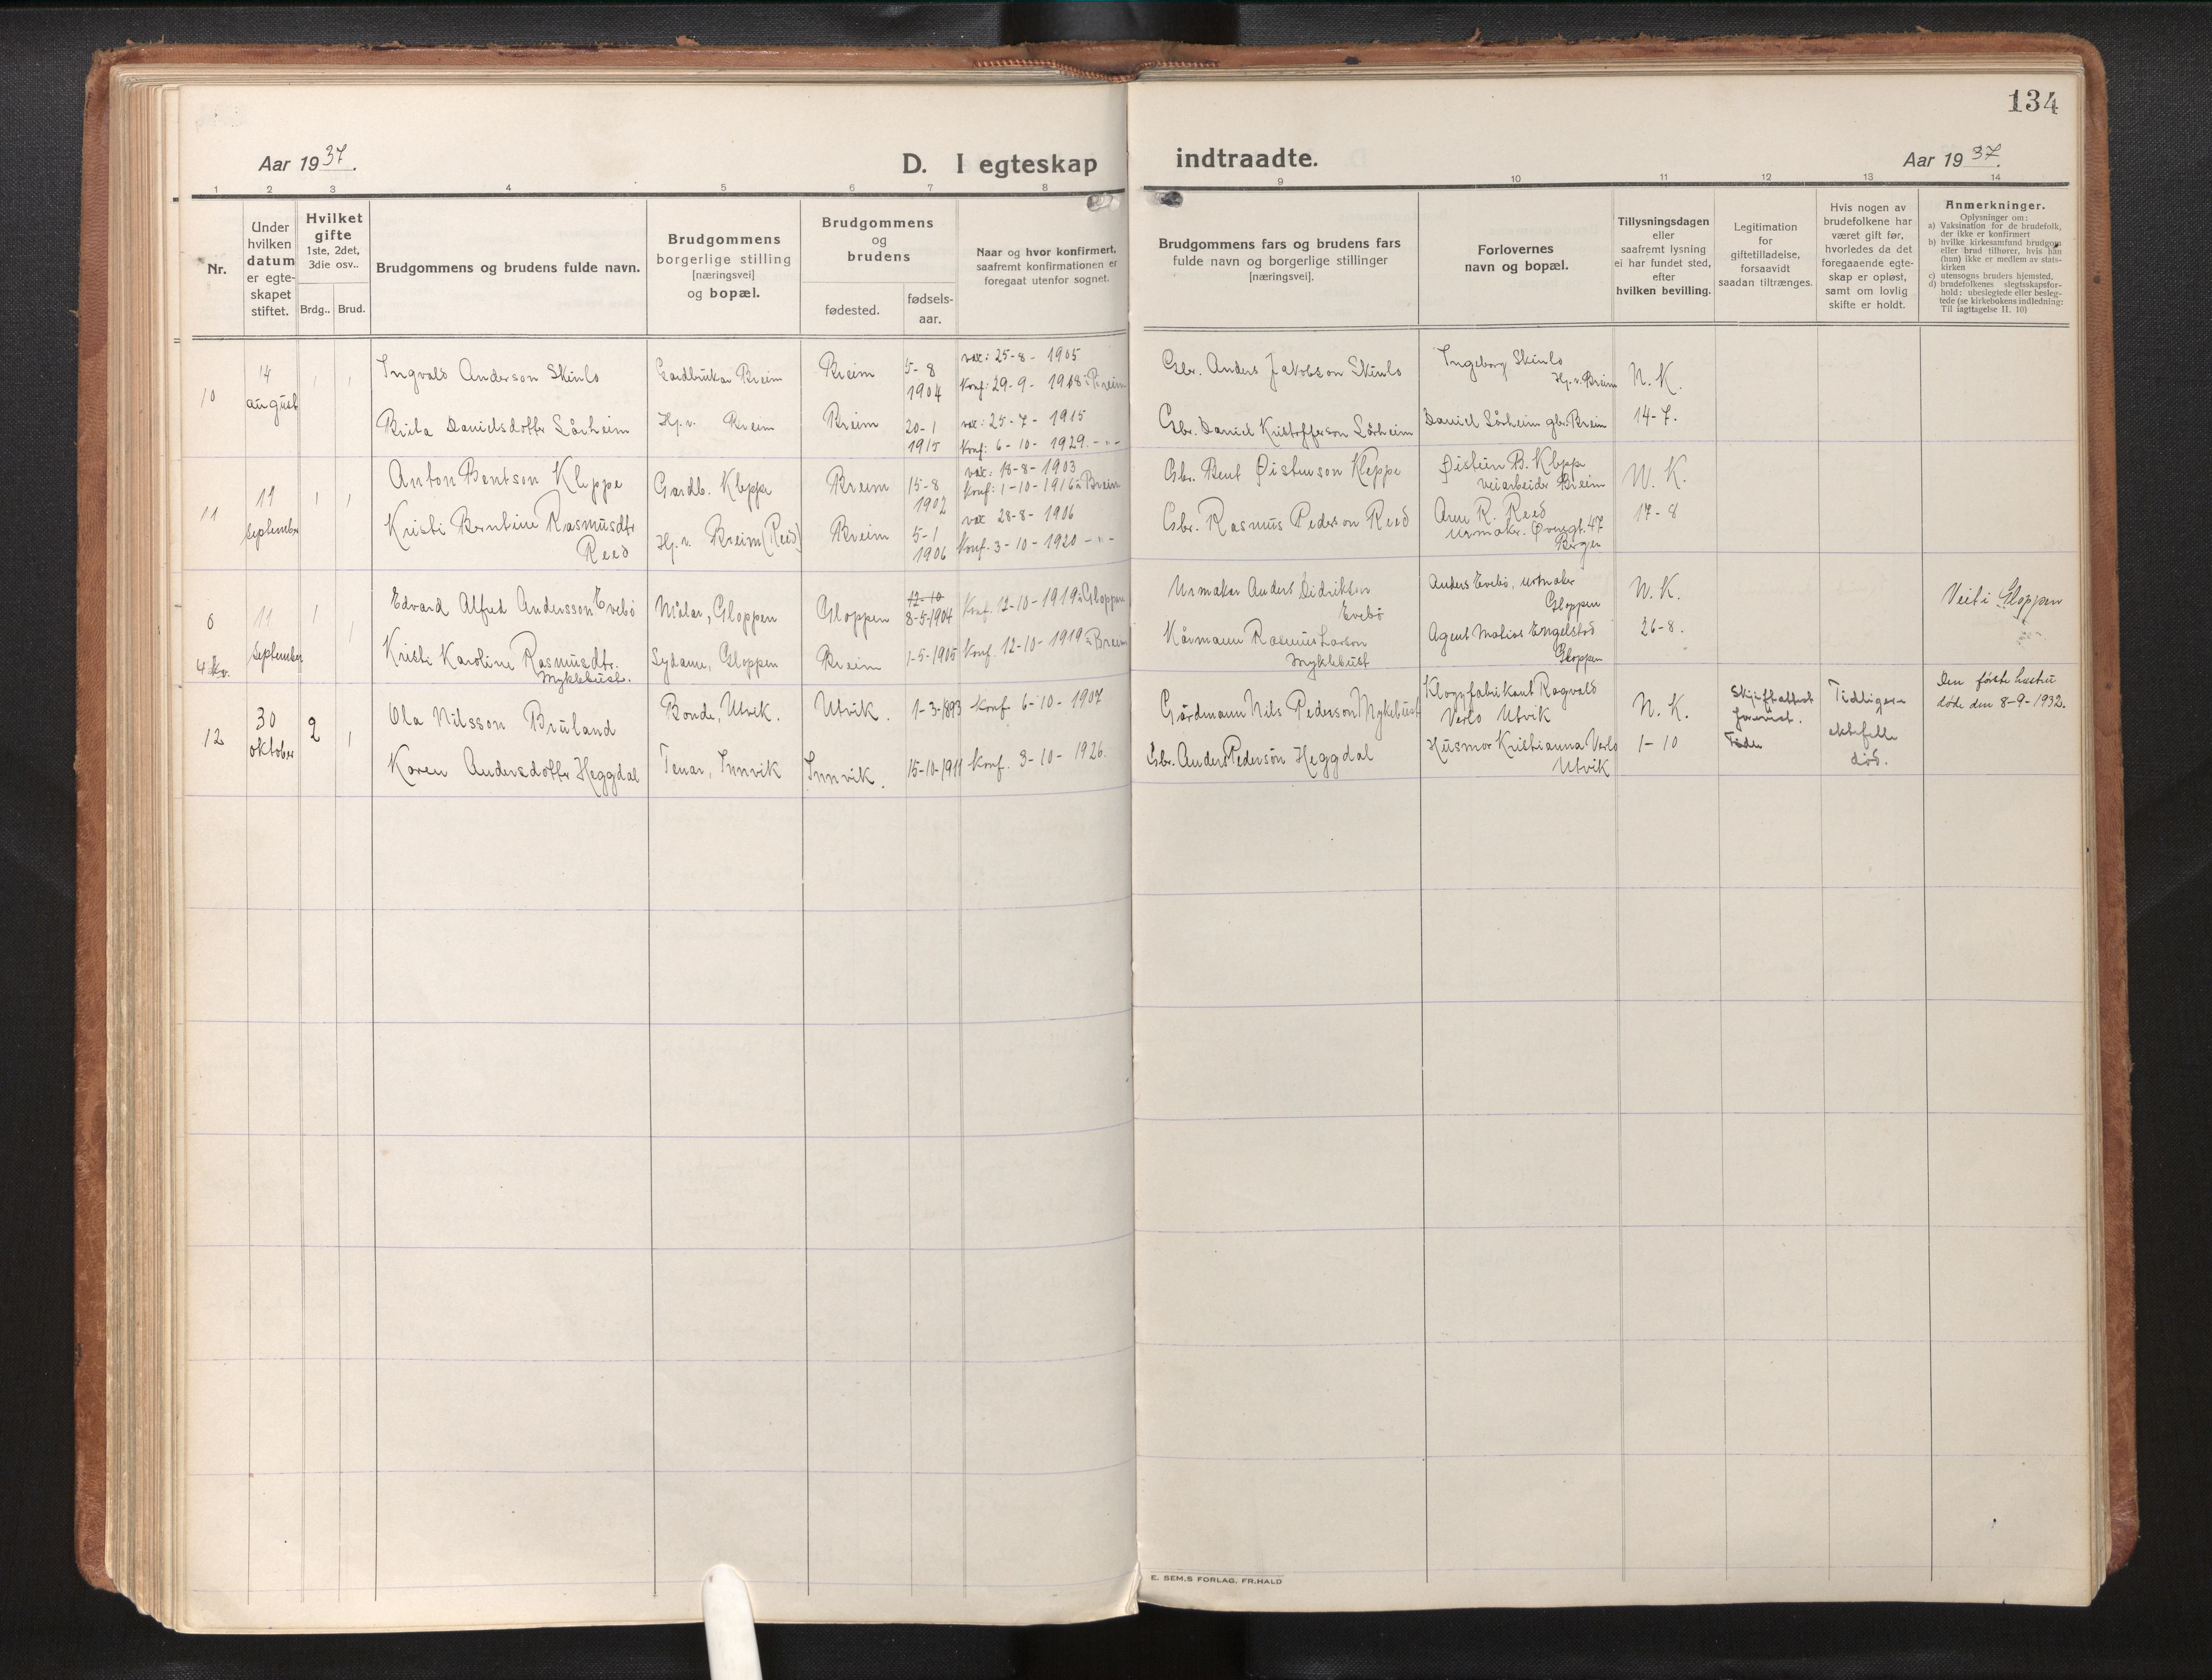 134
Aar 1937.
D. I egteskap indtraadte.
Aar 1937.
1 2 3 4 5 6 7 8 9 10 11 12 13 14
Nr.
Under
hvilken
datum
er egte-
skapet
stiftet.
Hvilket
gifte
1ste, 2det,
3die osv..
Brdg.. Brud.
Brudgommens og brudens fulde navn.
Brudgommens
borgerlige stilling
[næringsvei]
og bopæl.
Brudgommens
og
brudens
fødested.
fødsels-
aar.
Naar og hvor konfirmert,
saafremt konfirmationen er
foregaat utenfor sognet.
Brudgommens fars og brudens fars
fulde navn og borgerlige stillinger
[næringsvei].
Forlovernes
navn og bopæl.
Tillysningsdagen
eller
saafremt lysning
ei har fundet sted,
efter
hvilken bevilling.
Legitimation
for
giftetilladelse,
forsaavidt
saadan tiltrænges.
Hvis nogen av
brudefolkene har
været gift før,
hvorledes da det
foregaaende egte-
skap er opløst,
samt om lovlig
skifte er holdt.
Anmerkninger.
Oplysninger om:
a) Vaksination for de brudefolk,
der ikke er konfirmert
b) hvilke kirkesamfund brudgom
eller brud tilhører, hvis han
(hun) ikke er medlem av stats-
kirken
c) utensogns bruders hjemsted.
d) brudefolkenes slegtsskapsfor-
hold: ubeslegtede eller besleg-
tede (se kirkebokens indledning:
Til iagttagelse II. 10)
10
14
august
1 1
Ingvald Anderson Skinlo
Gardbrukar Breim
Breim
5-8
1904
vac: 25-8-1905
Konf: 29-9-1918 i Breim
Gbr. Anders Jakobson Skinlo
Ingeborg Skinlo
Hj.v. Breim
N. K.
Brita Danielsdotter Sårheim
Hj.v. Breim
Breim
20-1
1915
vac: 25-7-1915
Konf: 6-10-1929. - " -
Gbr. Daniel Kristofferson Sårheim
Daniel Sårheim gbr. Breim
14-7.
11
11
september
1 1
Anton Bentson Kleppe
Gardb. Kleppe
Breim
15-8
1902
vac: 18-8-1903
Konf: 1-10-1916 i Breim
Gbr. Bent Øistenson Kleppe
Øistein B. Kleppe
veiarbeider Breim
N. K.
Kristi Berntine Rasmusdtr
Reed
Hj.v. Breim (Reed)
Breim
5-1
1906
vac 28-8-1906
Konf. 3-10-1920 - " -
Gbr. Rasmus Pederson Reed
Arne R. Reed
urmaker. Øvregt. 47
Bergen
17-8
6
4 kv.
11
september
1 1
Edvard Alfred Andersson Evebø
Målar, Gloppen
Gloppen
12-10
8-5-1904
Konf. 12-10-1919 i Gloppen
Urmaker Anders Didrikson
Evebø
Anders Evebø, urmaker
Gloppen
N. K.
Veit i Gloppen
Kristi Karoline Rasmusdtr.
Myklebust.
Sydame, Gloppen
Breim
1-5-1905
Konf. 12-10-1919 i Breim
Kårmann Rasmus Larson
Myklebust
Agent Matias Engelstad
Gloppen
26-8.
12
30
oktober
2 1
Ola Nilsson Bruland
Bonde, Utvik.
Utvik.
1-3-1893
Konf 6-10-1907
Gårdmann Nils Pederson Mykebust
Ragvald
Verlo Utvik
N. K.
Skifteattest
Tidligere
ektefelle
død.
Den første hustru
døde den 8-9-1932.
Karen Andersdotter Heggdal
Tenar, Innvik
Innvik.
15-10-1911
Konf. 3-10-1926.
Gbr. Anders Pederson Heggdal
Husmor Kristianna Verlo
Utvik
1-10
E. SEM.S FORLAG, FR.HALD